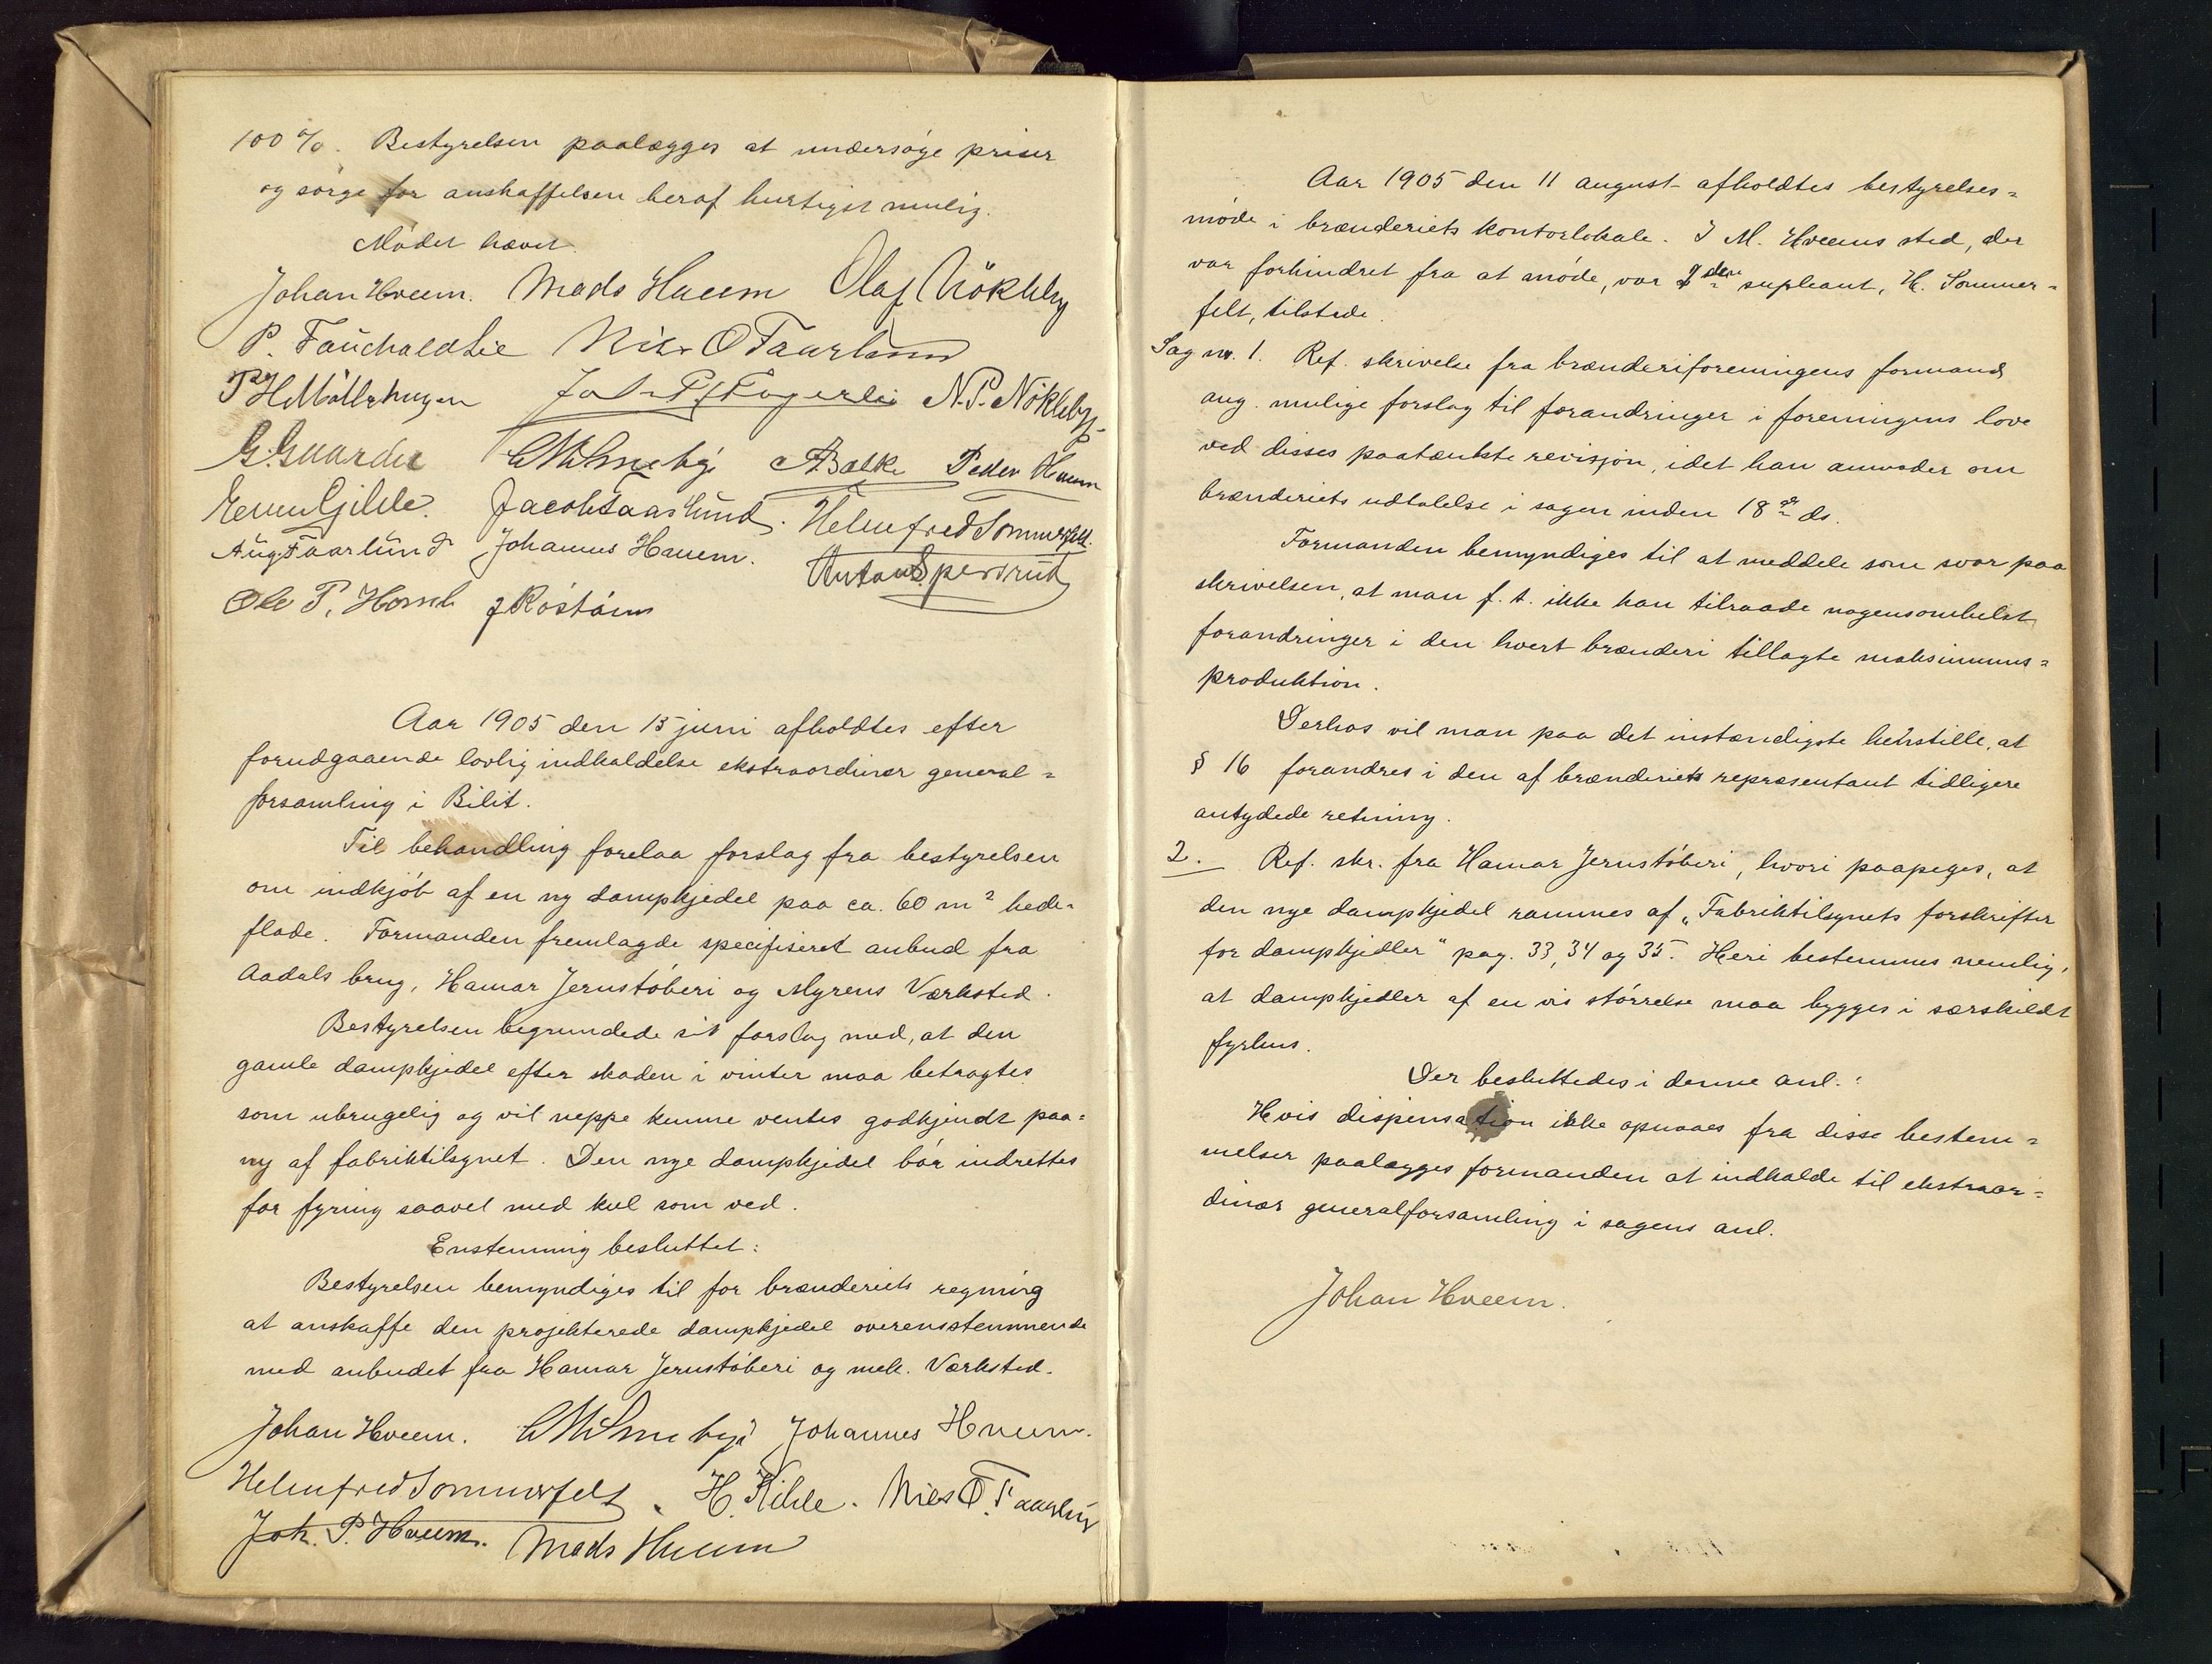 100%. Bestyrelsen paalægges at undersøge priser
og sørge for anskaffelsen heraf hurtigst mulig.
Mødet hævet.
Johan Hveem. Mads Hueem Olaf Nökleby
P. Fauchaldlie Niels O Faarlund
P H Möllerhagen Fagerlie N. P. Nökleby
G. Gaarder A Balke Peder Hveem
Even Gihle. Jacob Faarlund. Helmfred Sommerfelt.
Aug. Faarlund Johannes Hveem. Anton Sperrud
Ole P. J Röstöen
Aar 1905 den 15 juni afholdtes efter
forudgaaende lovlig indkaldelse ekstraordinær general=
forsamling i Bilit.
Til behandling forelaa forslag fra bestyrelsen
om indkjøb af en ny dampkjedel paa ca. 60 m² hede-
flade. Formanden fremlagde specifiseret anbud fra
Aadals brug, Hamar Jernstøberi og Myrens Værksted.
Bestyrelsen begrundede sit forslag med, at den
gamle dampkjedel efter skaden i vinter maa betragtes
som ubrugelig og vil neppe kunne ventes godkjendt paa=
ny af fabriktilsynet. Den nye dampkjedel bør indrettes
for fyring saavel med kul som ved.
Enstemmig besluttet:
Bestyrelsen bemyndiges til for brænderiets regning
at anskaffe den projekterede dampkjedel overensstemmende
med anbudet fra Hamar Jernstøberi og mek. Værksted.
Johan Hveem. Johannes Hveem.
Helmfred Sommerfelt. H. Kihle. Niels O. Faarlun
Joh. P. Hveem. Mads Hueem
Aar 1905 den 11 august afholdtes bestyrelses=
møde i brænderiets kontorlokale. I M. Hveems sted, der
var forhindret fra at møde, var 2den supleant, H. Sommer=
felt, tilstede.
Sag nr. 1. Ref. skrivelse fra brænderiforeningens formand
ang. mulige forslag til forandringer i foreningens love
ved disses paatænkte revisjon, idet han anmoder om
brænderiets udtalelse i sagen inden 18de ds.
Formanden bemyndiges til at meddele som svar paa
skrivelsen, at man f. t. ikke kan tilraade nogensomhelst
forandringer i den hvert brænderi tillagte maksimums=
produktion.
Derhos vil man paa det instændigste henstille, at
§ 16 forandres i den af brænderiets repræsentant tidligere
antydede retning.
2. Ref. skr. fra Hamar Jernstøberi, hvori paapeges, at
den nye dampkjedel rammes af „Fabriktilsynets forskrifter
for dampkjedler“ pag. 33, 34 og 35. Heri bestemmes nemlig,
at dampkjedler af en vis størrelse maa bygges i særskildt
fyrhus.
Der besluttedes i denne anl.:
Hvis dispensation ikke opnaaes fra disse bestem=
melser paalægges formanden at indkalde til ekstraor=
dinær generalforsamling i sagens anl.
Johan Hveem.